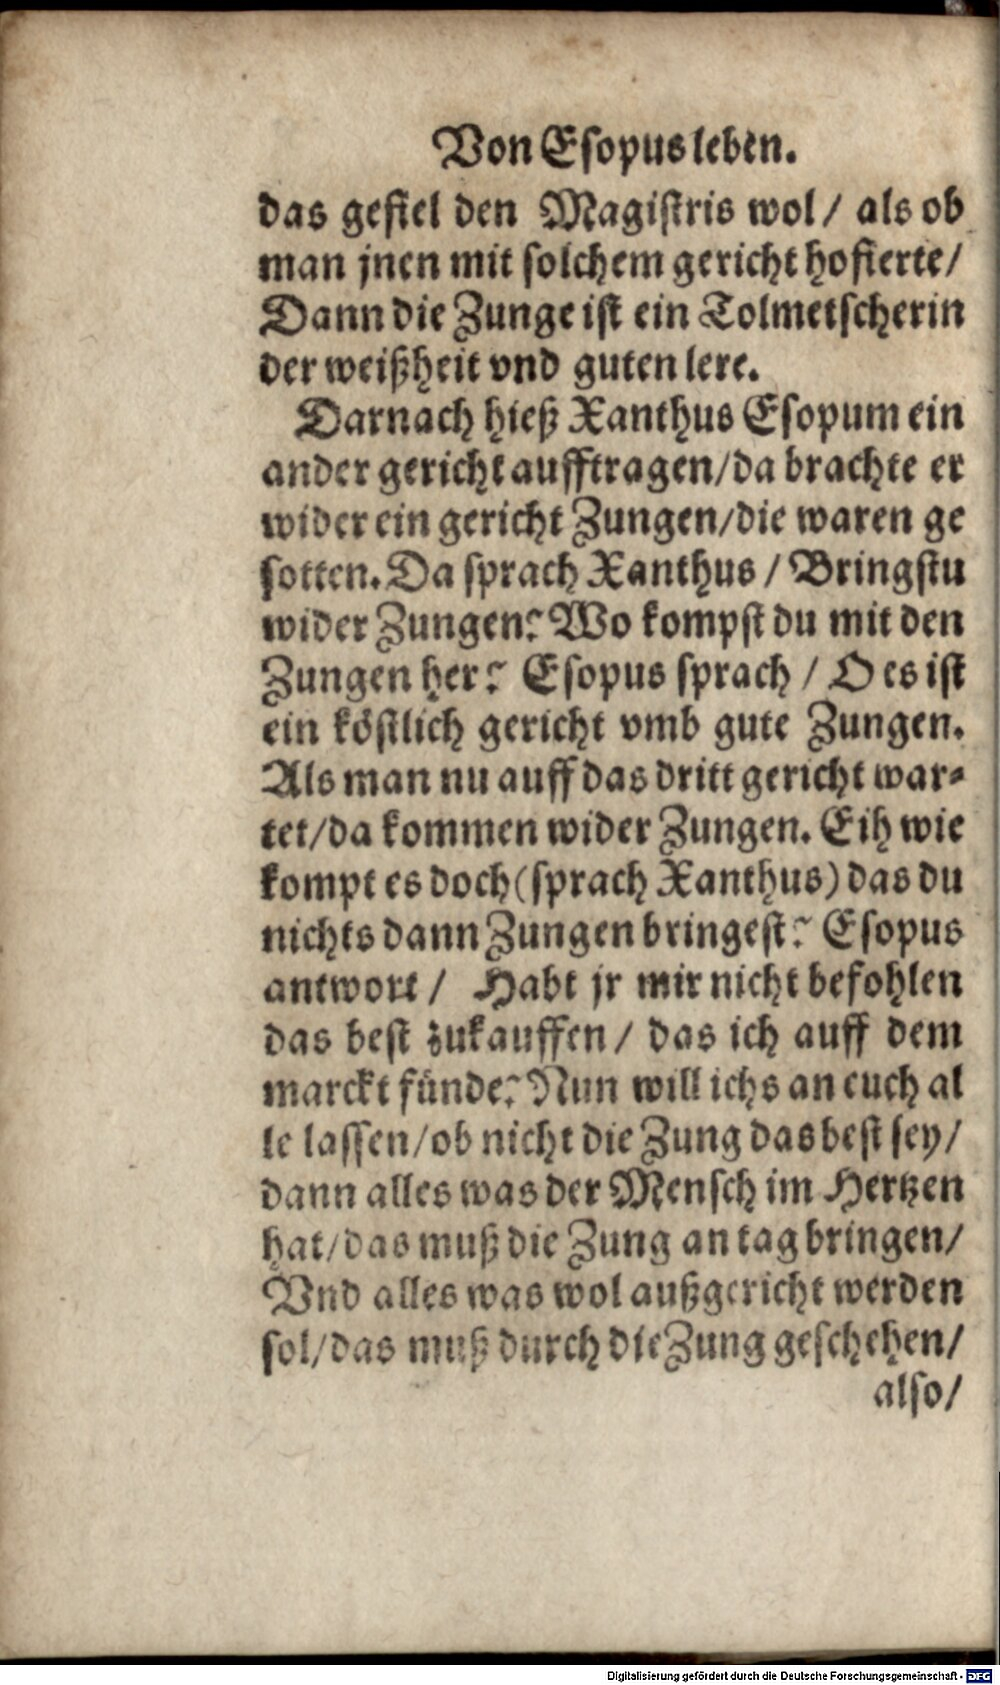 Von Esopus leben.
das gefiel den Magistris wol / als ob
man jnen mit solchem gericht hofierte /
Dann die Zunge ist ein Tolmetscherin
der weißheit vnd guten lere.
Darnach hieß Xanthus Esopum ein
ander gericht aufftragen / da brachte er
wider ein gericht Zungen / die waren ge
sotten. Da sprach Xanthus / Bringstu
wider Zungen? Wo kompst du mit den
Zungen her? Esopus sprach / O es ist
ein köstlich gericht vmb gute Zungen.
Als man nu auff das dritt gericht war-
tet / da kommen wider Zungen. Eih wie
kompt es doch (sprach Xanthus) das du
nichts dann Zungen bringest? Esopus
antwort / Habt jr mir nicht befohlen
das best zukauffen / das ich auff dem
marckt fünde? Nun will ichs an euch al
le lassen / ob nicht die Zung das best sey /
dann alles was der Mensch im Hertzen
hat / das muß die Zung an tag bringen /
Vnd alles was wol außgericht werden
sol / das muß durch die Zung geschehen /
also /
Digitalisierung gefördert durch die Deutsche Forschungsgemeinschaft - DFG